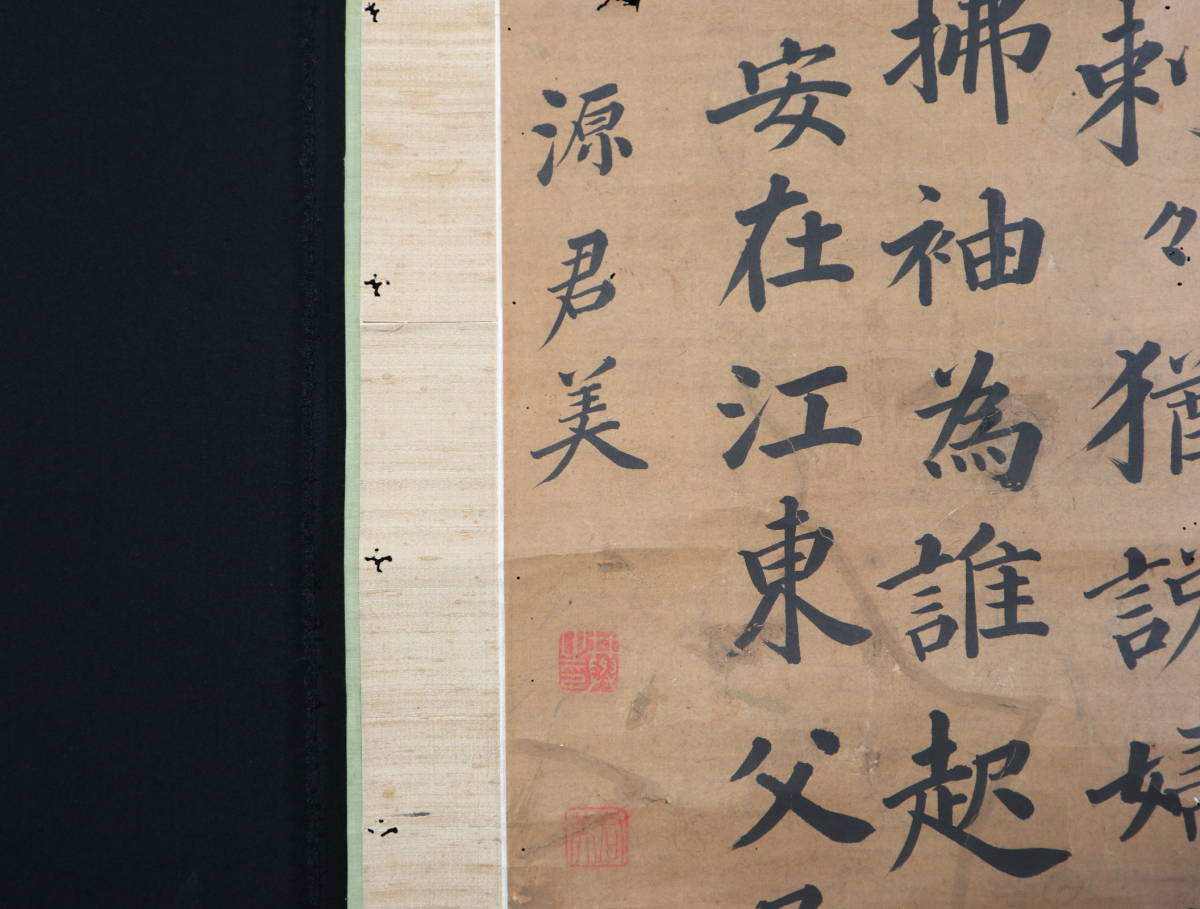 刺々猶説婦
拂袖為誰起
安在江東父
源君美